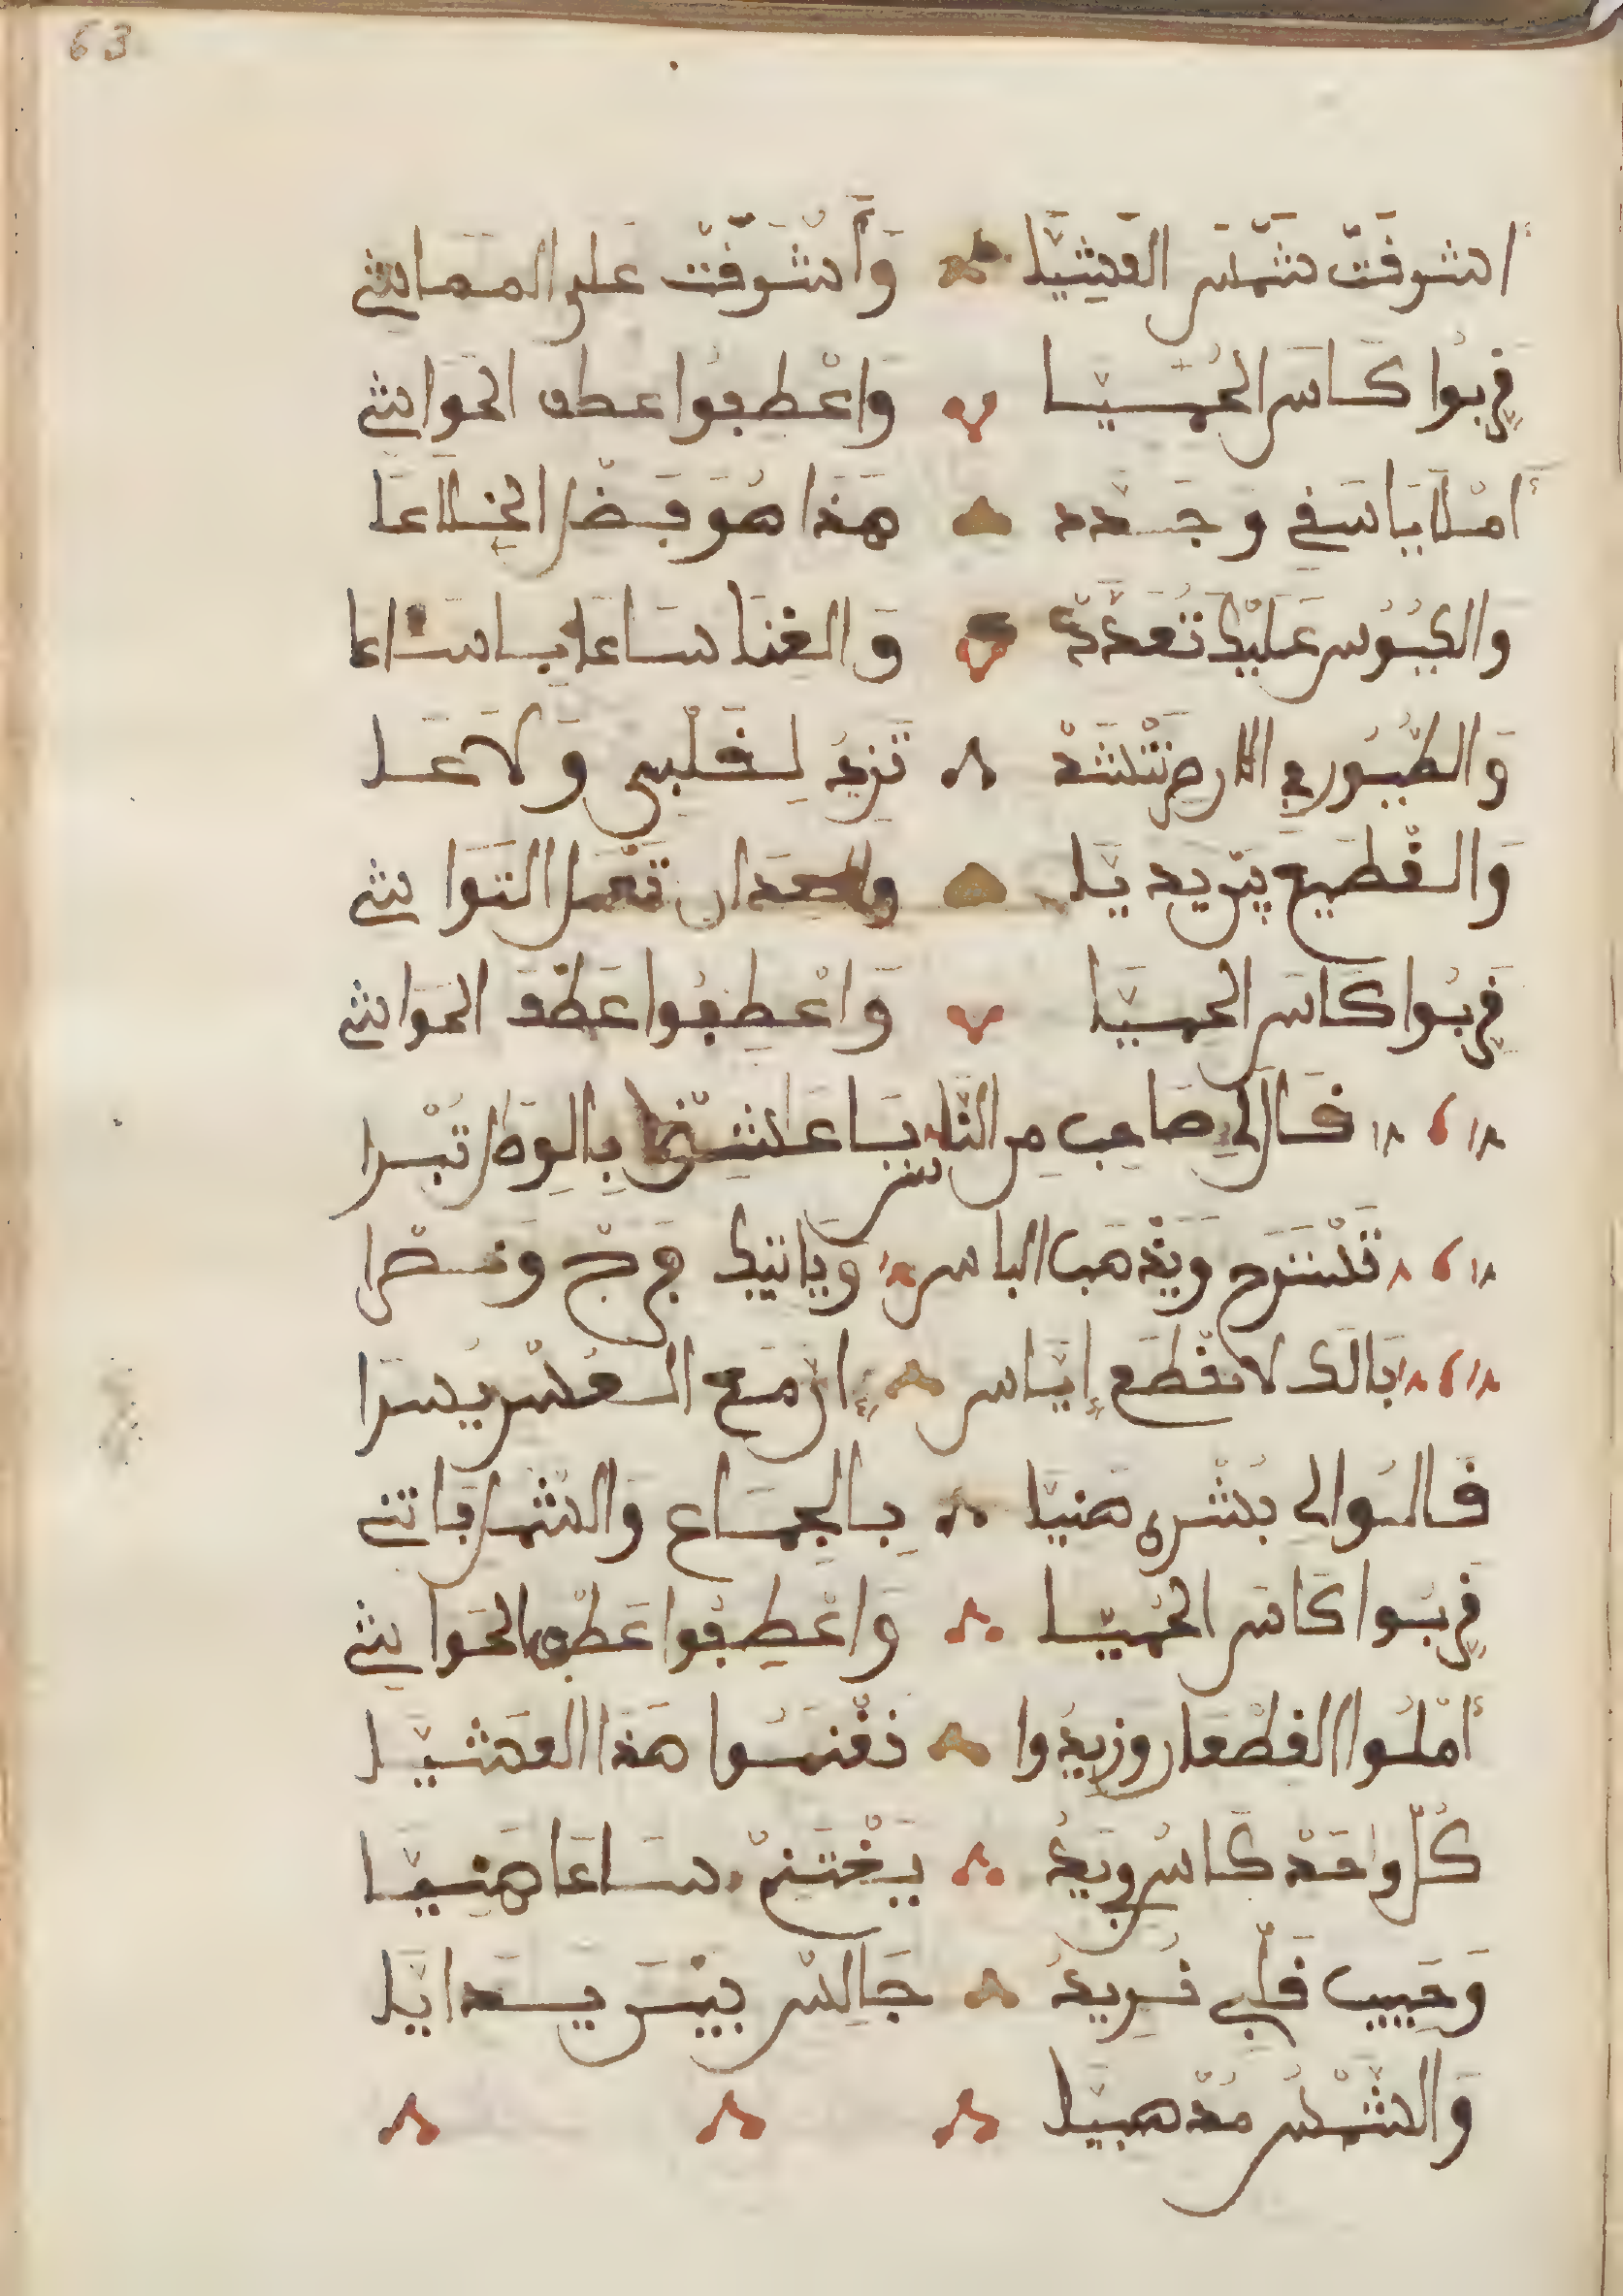 63
أشرفت شمس العشيا وأشرفت على المماشي
قربوا كاس الحميا واعطفوا عطف الحواشي
أملا ياسقي وجدد هذا هو فضل الخلاعا
والكيوس عليك تعدد والغنا ساعا بساعا
والطيور في الارض تنشد تزيد لقلبي ولاعا
والقطيع بين يديا تعمل التواشي
قربوا كاس الحميا واعطفوا عطف الحواشي
قال لي صاحب من الناس يا عاشق بالوصل تبرا
تستريح ويذهب الباس وياتيك فرج ونصرا
بالك لا تقطع إياس إن مع العسر يسرا
قالوا لي بشره هنيا بالجماع والشمل ياتي
قربوا كاس الحميا واعطفوا عطف الحواشي
أملوا القطعا وزيدوا نغنموا هذا العشيا
كل واحد كاس في يد يغتنم ساعا هنيا
وحبيب قلبي نريد جالس بين يدايا
والشمس مذهبيا